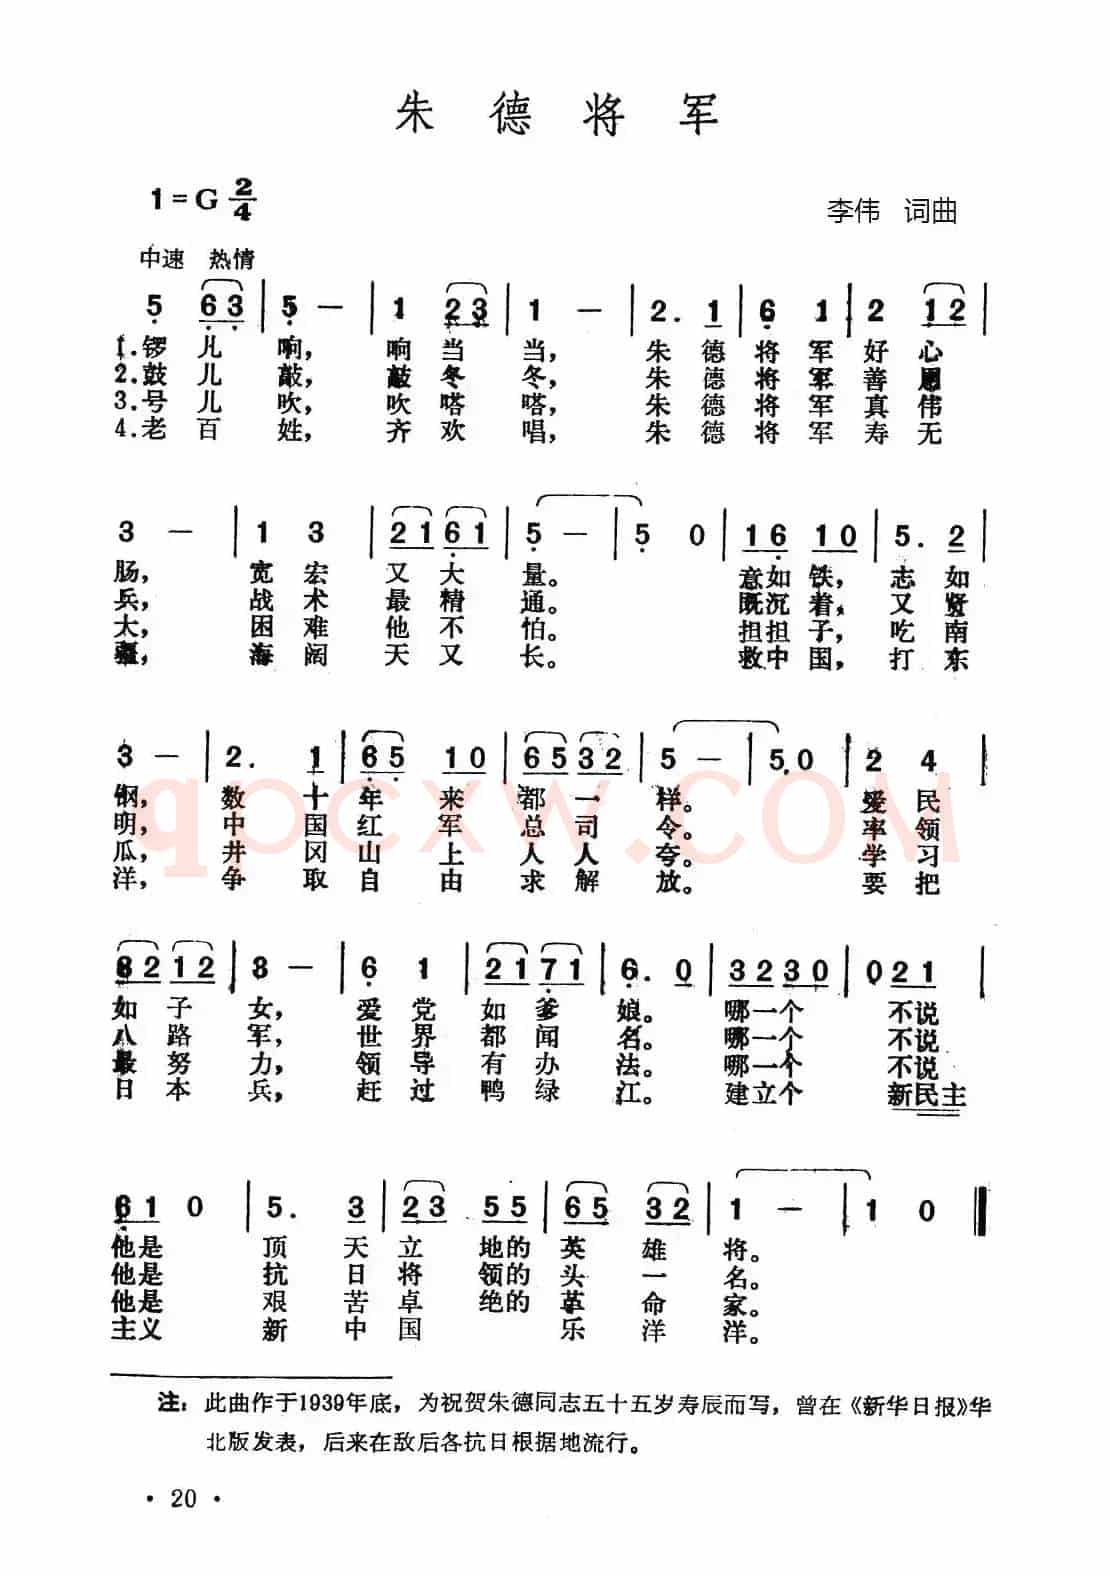 朱德将军
1=G 2/4
李伟 词曲
中速 热情
5 63 | 5 — | 1 23 | 1 — | 2. 1 | 6 1 | 2 12 |
1.锣 儿 响, 响 当 当, 朱 德 将 军 好 心
2.鼓 儿 敲, 敲 冬 冬, 朱 德 将 军 善 用
3.号 儿 吹, 吹 嗒 嗒, 朱 德 将 军 真 伟
4.老 百 姓, 齐 欢 唱, 朱 德 将 军 寿 无
3 — | 1 3 | 21 61 | 5 — | 5 0 | 16 10 | 5. 2 |
肠, 宽 宏 又 大 量。 意如 铁, 志 如
兵, 战 术 最 精 通。 既沉 着, 又 贤
大, 困 难 他 不 怕。 担担 子, 吃 南
疆, 海 阔 天 又 长。 救中 国, 打 东
3 — | 2. 1 | 65 10 | 65 32 | 5 — | 5. 0 | 2 4 |
钢, 数 十 年 来 都 一 样。 爱 民
明, 中 国 红 军 总 司 令。 率 领
瓜, 井 冈 山 上 人 人 夸。 学 习
洋, 争 取 自 由 求 解 放。 要 把
32 12 | 3 — | 6 1 | 21 71 | 6. 0 | 32 30 | 0 21 |
如 子 女, 爱 党 如 爹 娘。 哪一个 不说
八 路 军, 世 界 都 闻 名。 哪一个 不说
最 努 力, 领 导 有 办 法。 哪一个 不说
日 本 兵, 赶 过 鸭 绿 江。 建立个 新民主
61 0 | 5. 3 | 23 55 | 65 32 | 1 — | 1 0 ‖
他是 顶 天 立 地的 英 雄 将。
他是 抗 日 将 领的 头 一 名。
他是 艰 苦 卓 绝的 革 命 家。
主义 新 中 国 乐 洋 洋。
注: 此曲作于1939年底, 为祝贺朱德同志五十五岁寿辰而写, 曾在《新华日报》华
北版发表, 后来在敌后各抗日根据地流行。
· 20 ·
qpcxw.com